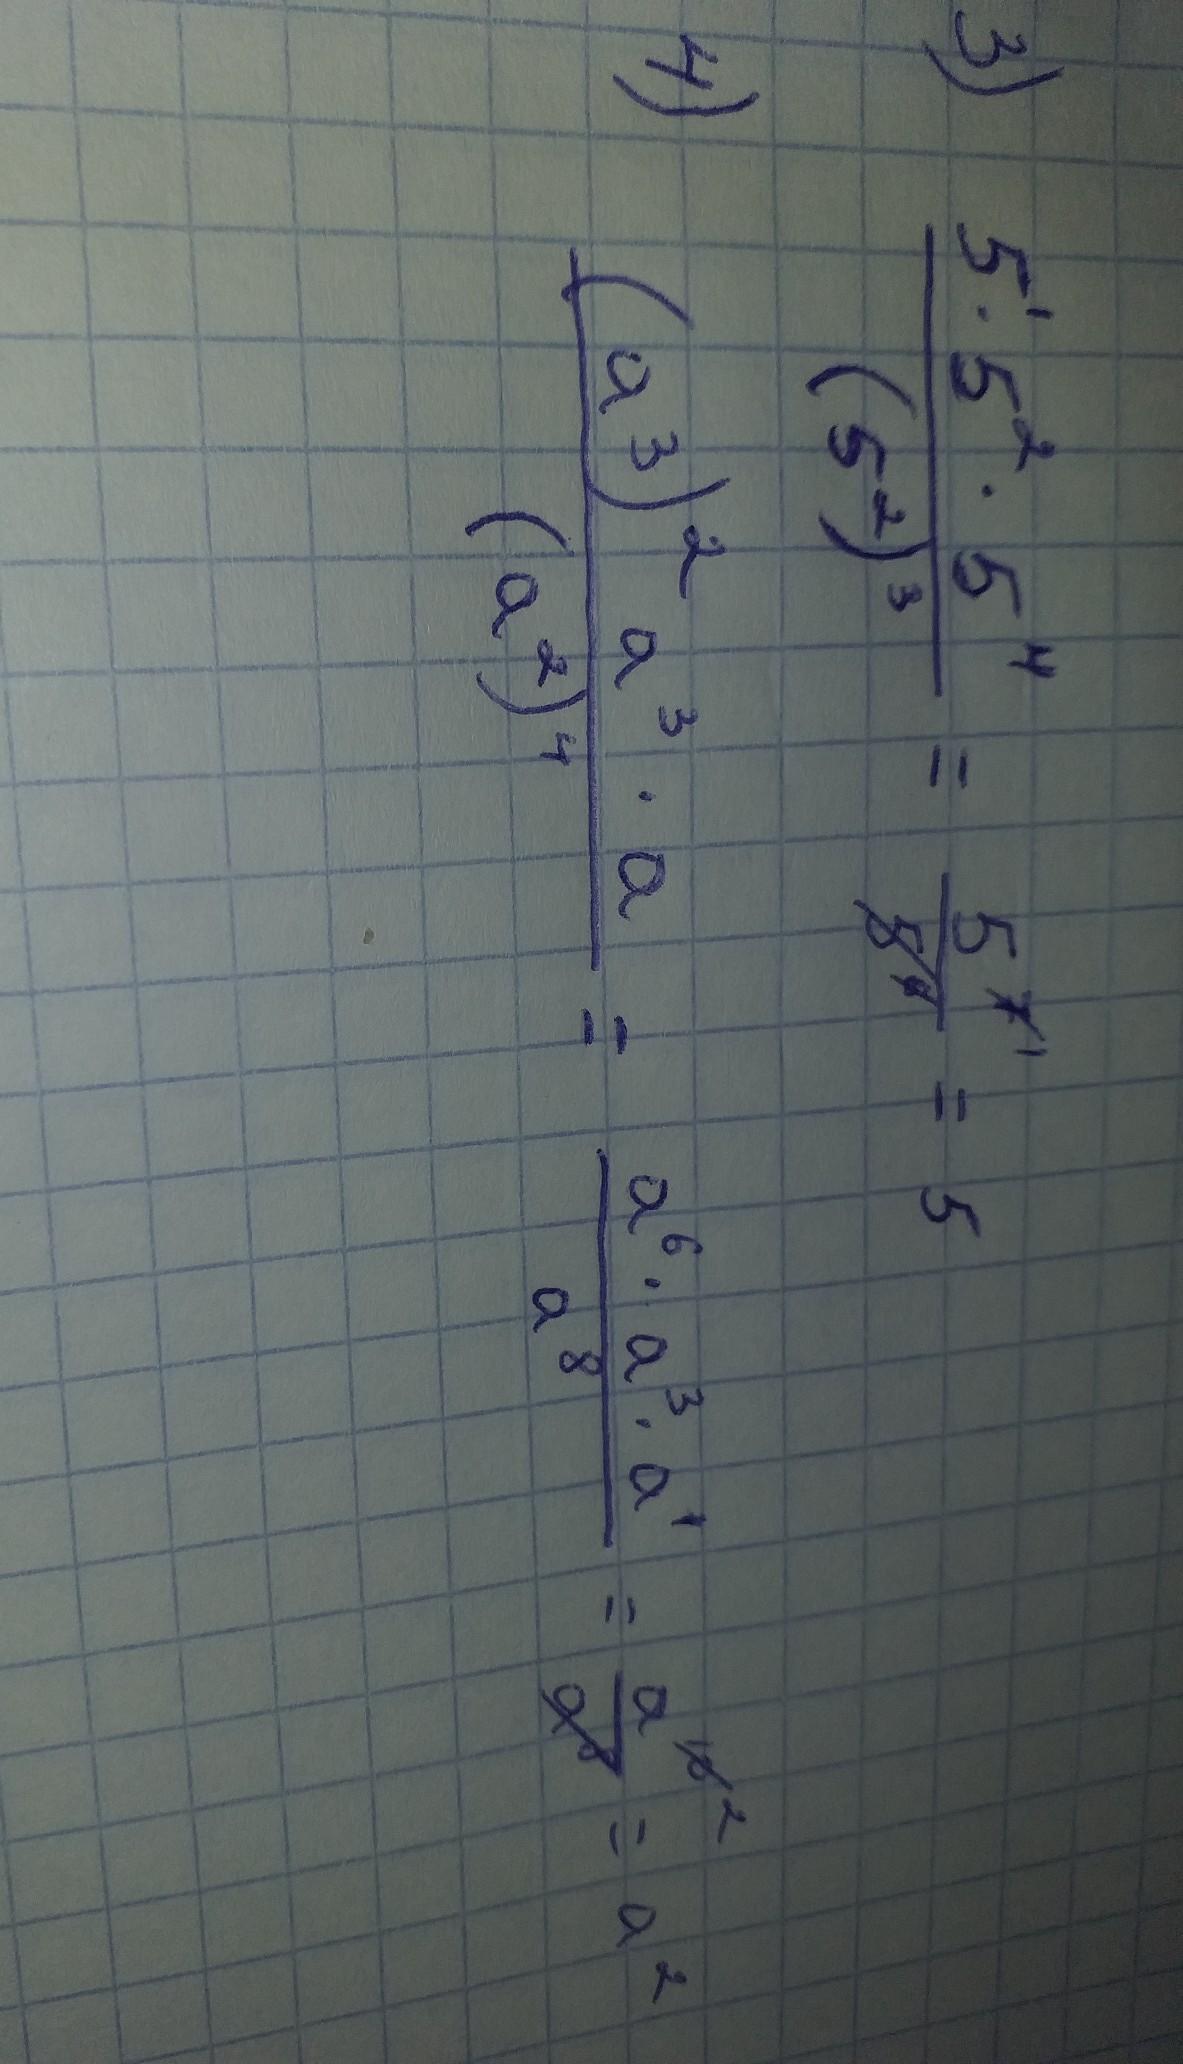 3) \frac{5^1 \cdot 5^2 \cdot 5^4}{(5^2)^3} = \frac{5^{\cancel{7} 1}}{\cancel{5^6}} = 5
4) \frac{(a^3)^2 a^3 \cdot a}{(a^2)^4} = \frac{a^6 \cdot a^3 \cdot a^1}{a^8} = \frac{a^{\cancel{10} 2}}{\cancel{a^8}} = a^2